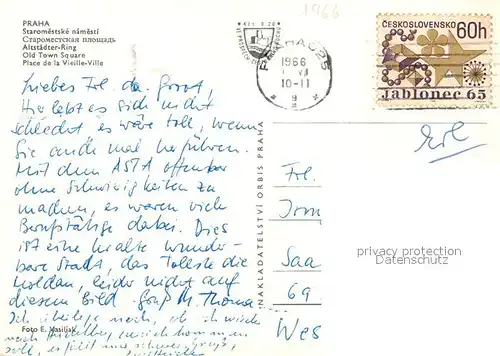 PRAHA
Staroměstské náměstí
Старомeстская площадь
Altstädter-Ring
Old Town Square
Place de la Vieille-Ville
1966
PRAHA 25
1966
10-11
ČESKOSLOVENSKO
60h
Jablonec 65
Liebes Frl. de Groot,
Hier lebt es sich nicht
schlecht es wäre toll, wenn
Sie auch mal herführen.
Mit dem ASTA offenbar
ohne Schwierigkeiten zu
machen, es waren viele
Berufstätige dabei. Dies
ist eine uralte wunder-
bare Stadt, das Tollste die
Moldau, leider nicht auf
diesem Bild. Gruß M. Thoma
Ich überlege noch, ob ich
nach
soll, es
Foto E. Vasiliak
NAKLADATELSTVÍ ORBIS PRAHA
Frl.
Irm
Saa
69
Wes
privacy protection
Datenschutz